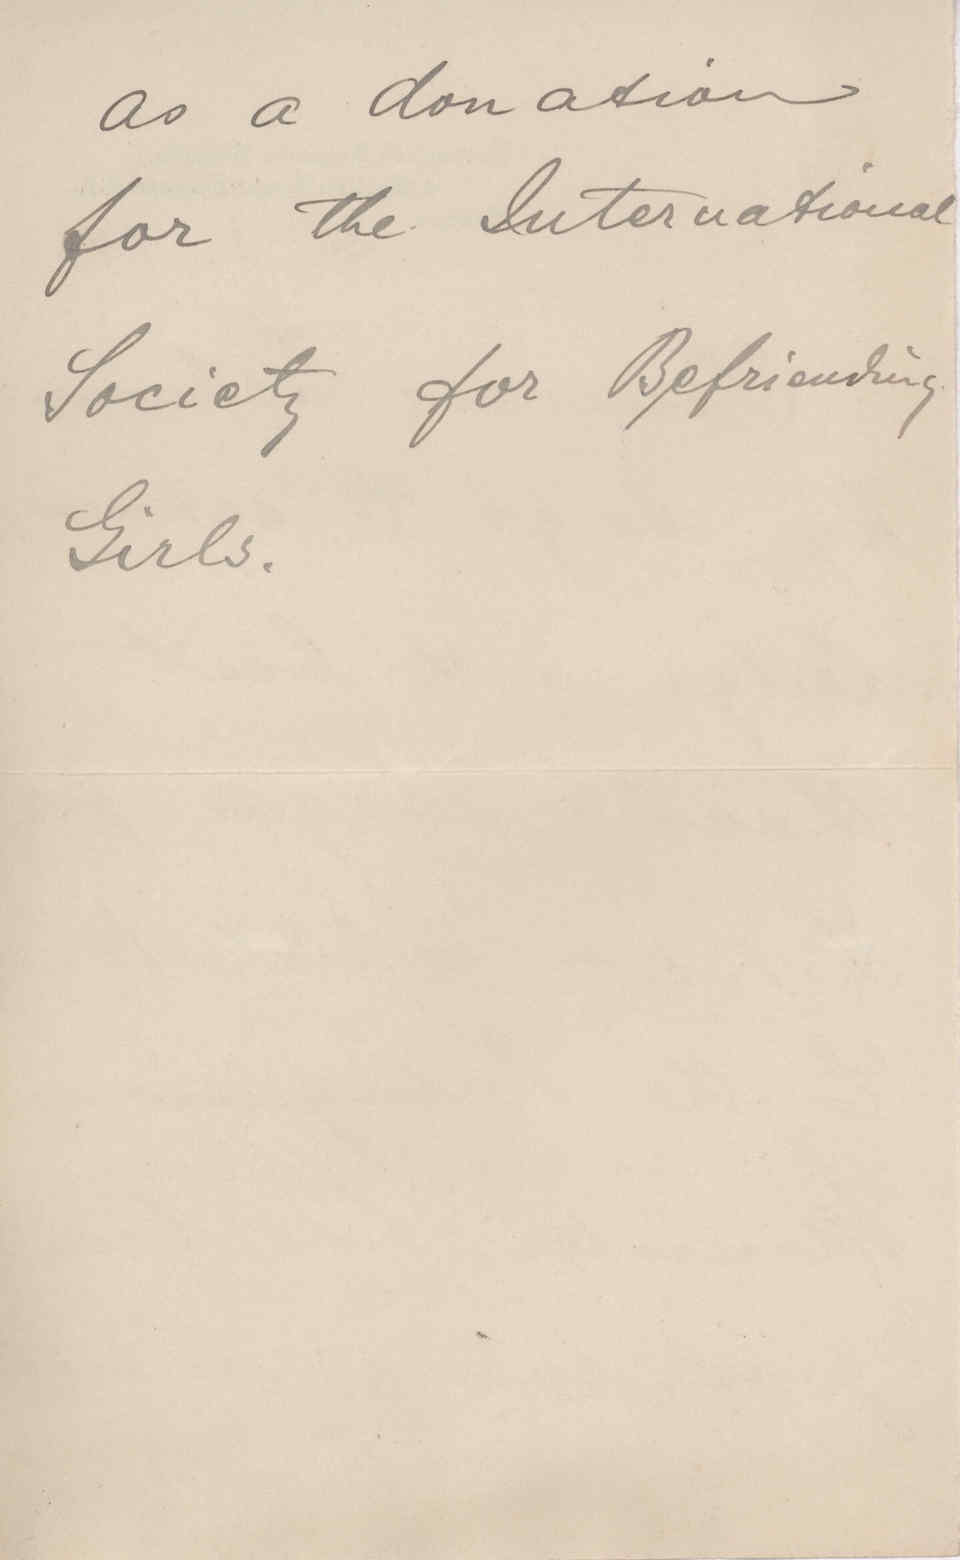 as a donation
for the International
Society for Befriending
Girls.